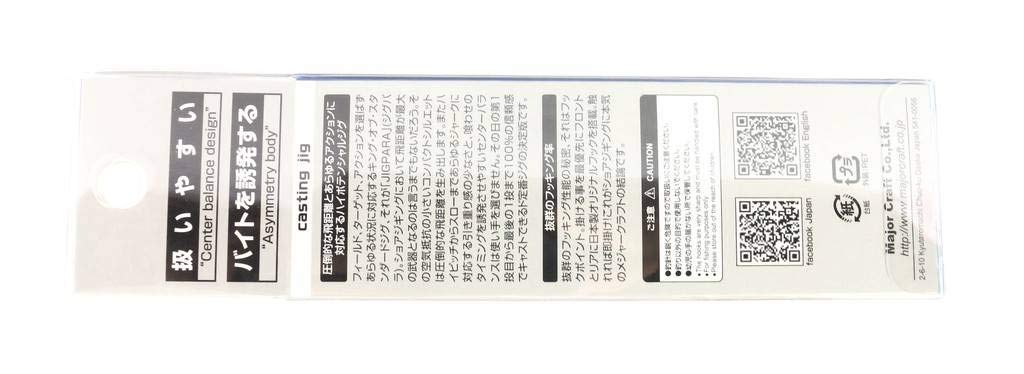 扱いやすい
"Center balance design"
バイトを誘発する
"Asymmetry body"
casting jig
圧倒的な飛距離とあらゆるアクションに
対応するハイポテンシャルジグ
フィールド、ターゲット、アクションを選ばず
あらゆる状況に対応するキング・オブ・スタ
ンダードジグ、それが「JIGPARA」(ジグパ
ラ)。ショアジギングにおいて飛距離が最大
の武器となるのは言うまでもないだろう。そ
の空気抵抗の小さいコンパクトシルエット
は圧倒的な飛距離を生み出します。またハ
イピッチからスローまであらゆるジャークに
対応する引き重り感の少なさと、喰わせの
タイミングを誘発させやすいセンターバラ
ンスは使い手を選びません。その日の第1
投目から最後の1投まで100%の信頼感
でキャストできるド定番ジグの決定版です。
抜群のフッキング率
抜群のフッキング性能の秘密、それはフッ
クポイント。掛ける事を最優先にフロント
とリアに日本製オリジナルフックを搭載。触
れれば即掛け!これがショアジギング!に本気
のメジャークラフトの結論です。
ご注意 CAUTION
●釣針は鋭く危険ですので取扱いにご注意ください。
●釣り以外の目的で使用しないでください。
●幼児の手の届かない所で保管してください。
●The hooks are very sharp
●For fishing purposes only.
●Please store out of the reach of children.
facebook Japan
facebook English
紙
台紙
プラ
外袋:PET
Major Craft Co.,Ltd.
http://www.majorcraft.co.jp
2-6-10 Kyutaromachi Chuo-ku Osaka Japan 541-0056